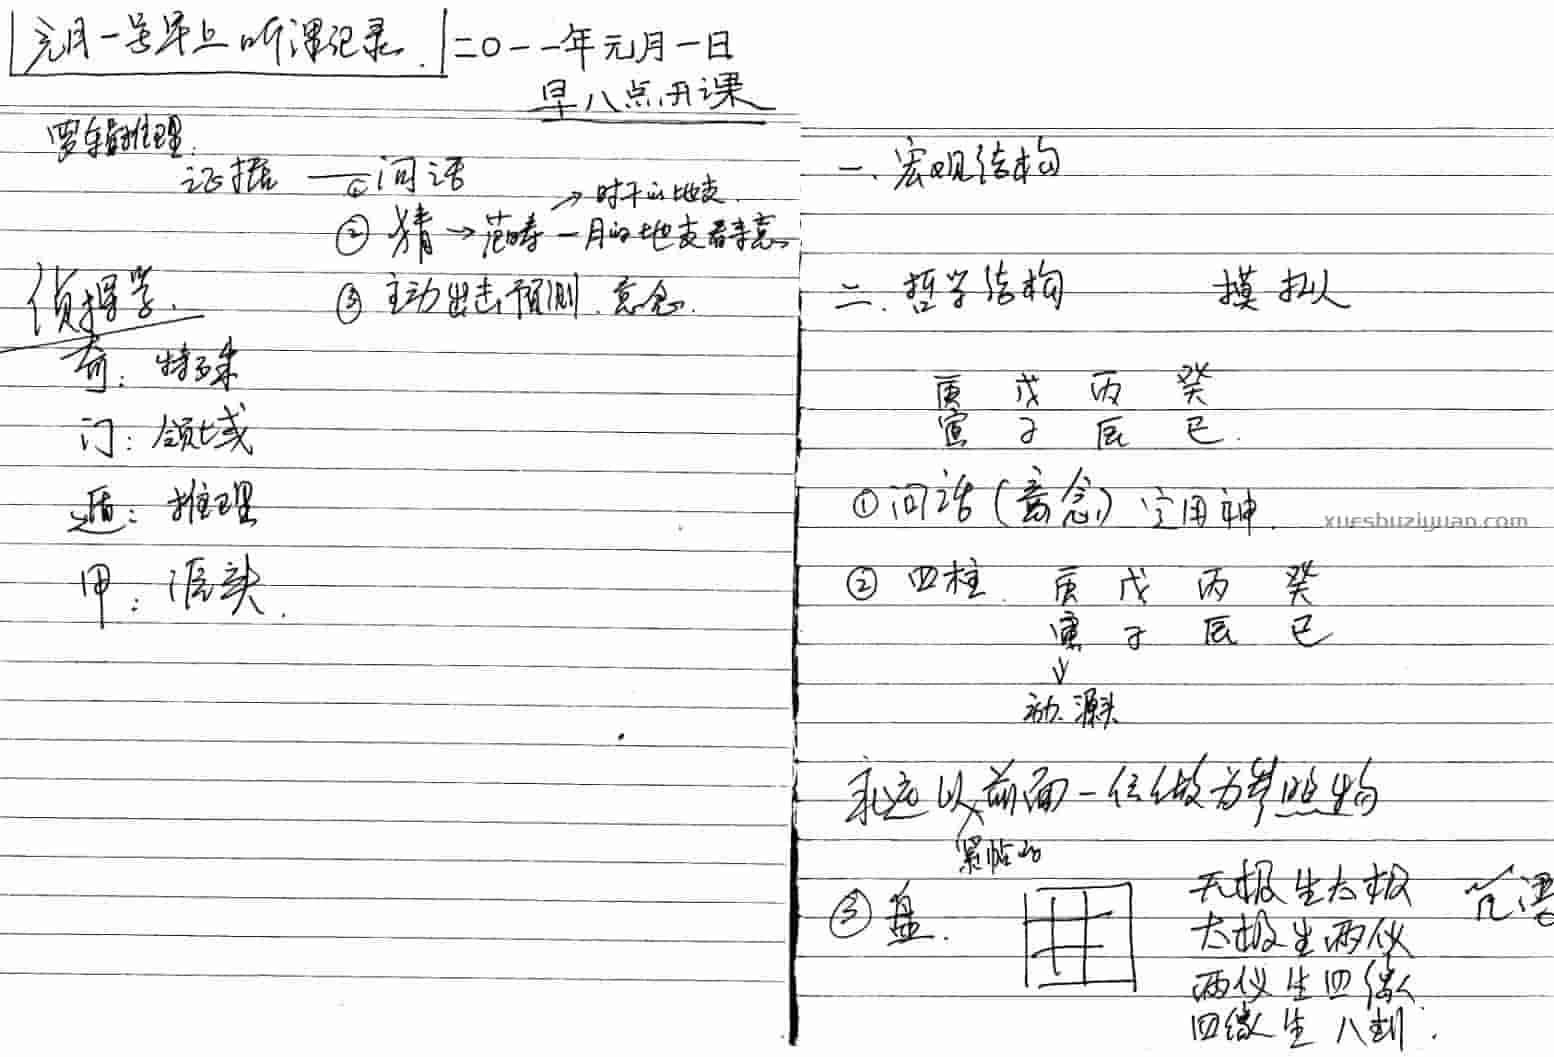 元月一号早上听课记录.
二〇一一年元月一日
早八点开课
罗辑推理.
证据 — ① 问话
→ 时干的地支.
② 猜 → 范畴 — 月的地支看来意.
③ 主动出击预测.意念.
侦探学.
奇: 特殊
门: 领域
遁: 推理
甲: 源头.
一. 宏观结构
二. 哲学结构 模拟
庚 戊 丙 癸
寅 子 辰 巳.
① 问话(意念) 定用神.
xueshuziyuan.com
② 四柱. 庚 戊 丙 癸
寅 子 辰 巳
↓
动.源头
永远以前面一位做为参照物
紧帖的
③ 盘.
无极生太极
太极生两仪
两仪生四象.
四象生八卦.